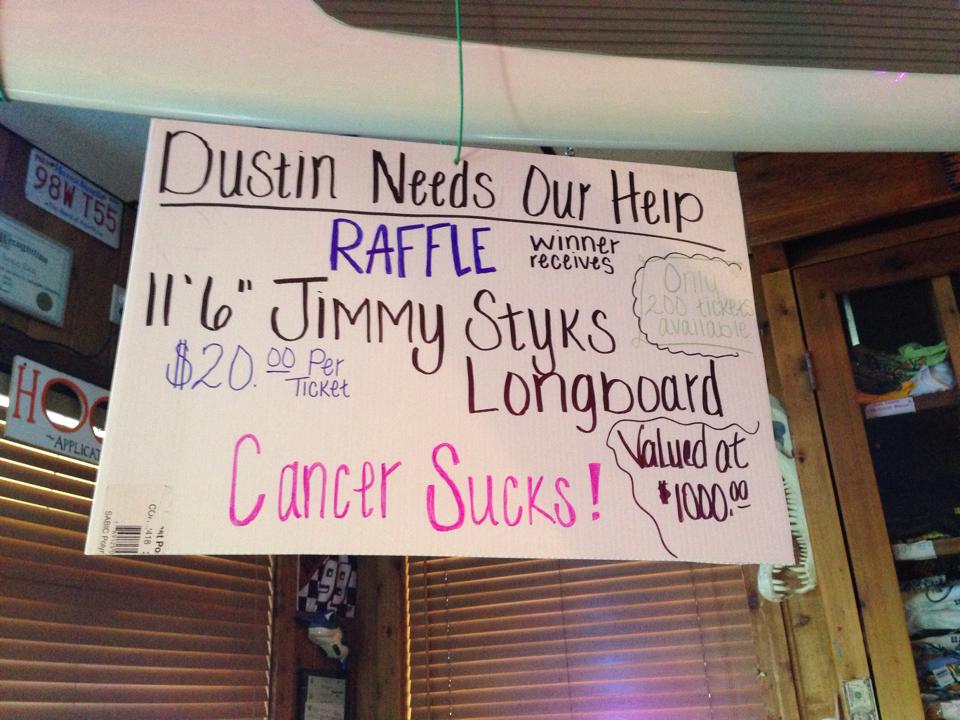 Dustin Needs Our Help
RAFFLE
winner
receives
Only
200 tickets
available
11'6" Jimmy Styks
Longboard
$20.00 Per
Ticket
Cancer Sucks!
Valued at
$1000.00
98W T55
HOO
~APPLICA